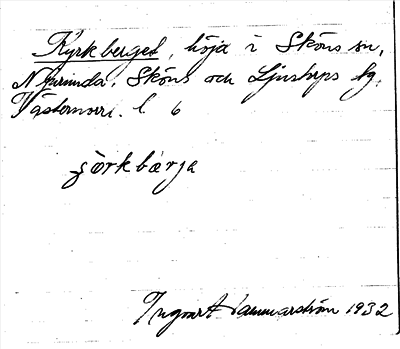 Kyrkberget, höjd i Sköns sn,
N [...] Sköns och Ljustorps tg.
Västernorrl. l 6
şòrkbærja
Ingvart Hammarström 1932